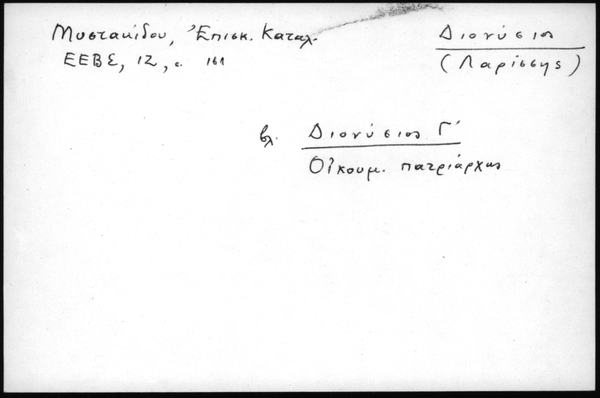 Μυστακίδου, Ἐπισκ. Καταλ.
ΕΕΒΣ, 12, σ. 161
Διονύσιος
(Λαρίσσης)
βλ. Διονύσιος Γ'
Οἰκουμ. πατριάρχης